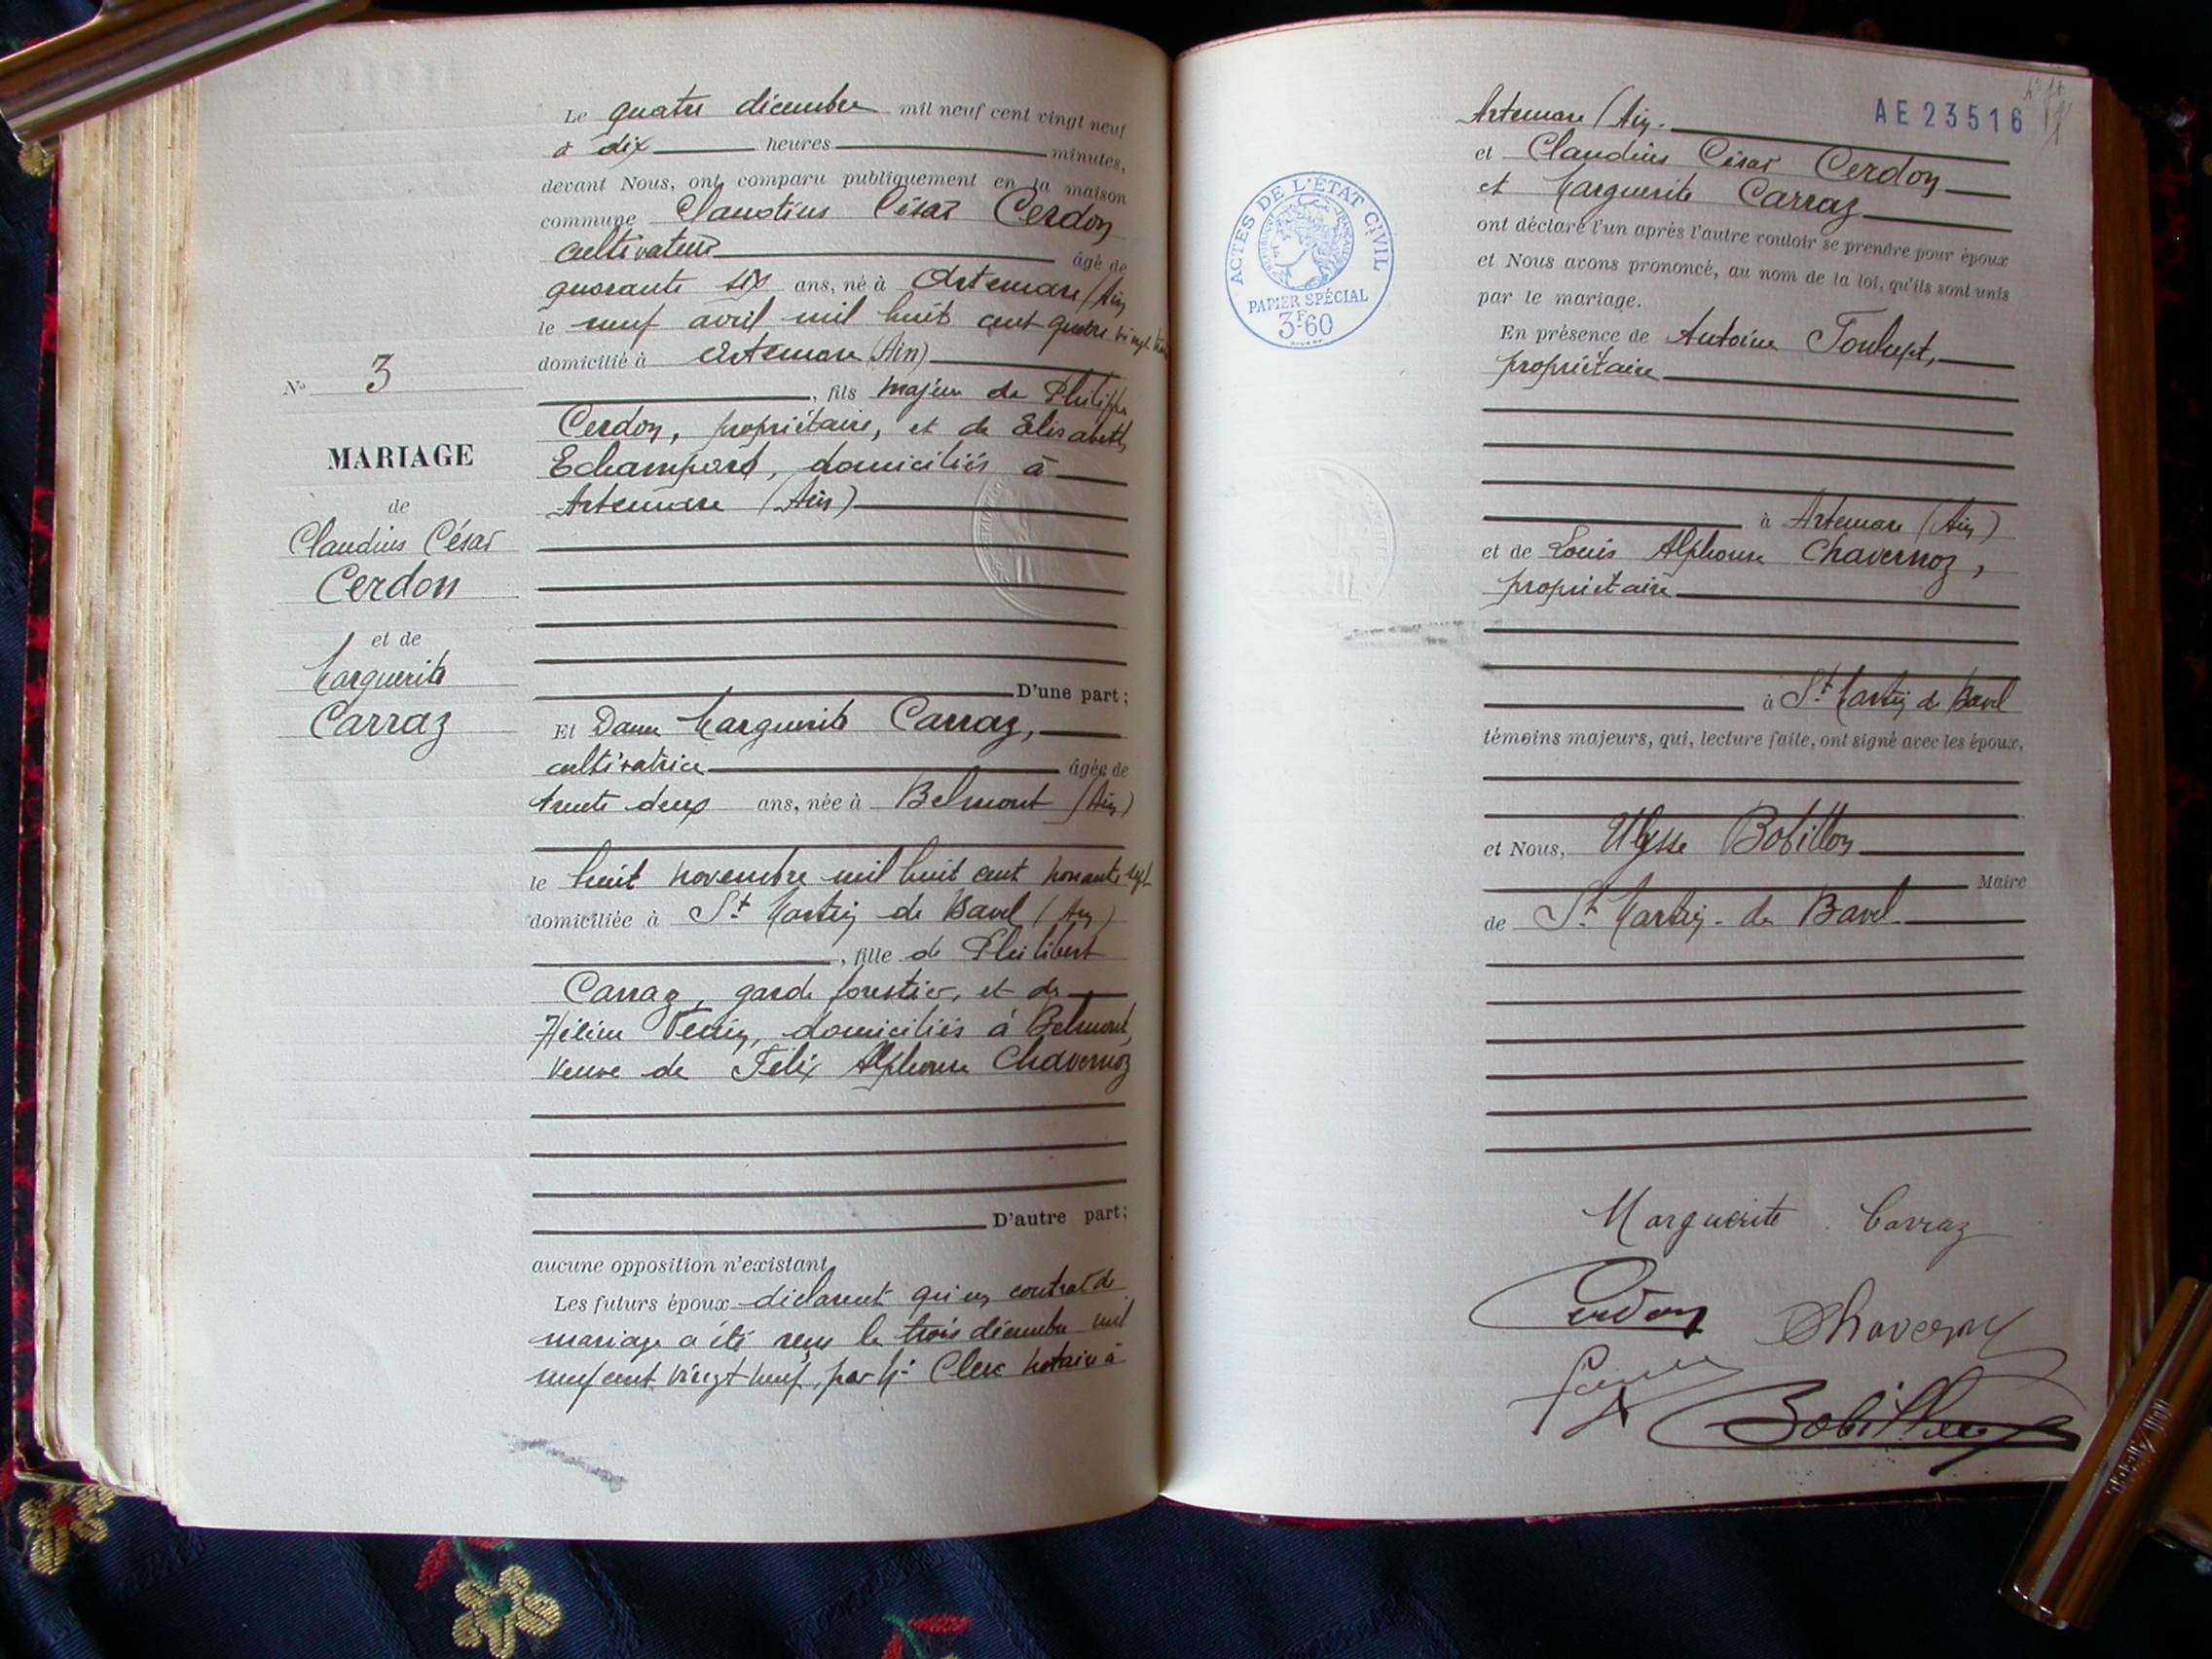 N° 3
MARIAGE
de
Claudius César
Cerdon
et de
Marguerite
Carraz
Le quatre décembre mil neuf cent vingt neuf
à dix heures minutes,
devant Nous, ont comparu publiquement en la maison
commune Claudius César Cerdon
cultivateur âgé de
quarante six ans, né à Artemare (Ain)
le neuf avril mil huit cent quatre vingt trois
domicilié à Artemare (Ain)
, fils majeur de Philippe
Cerdon, propriétaire, et de Elisabeth
Echampard, domiciliés à
Artemare (Ain)
D'une part;
Et Dame Marguerite Carraz,
cultivatrice âgée de
trente deux ans, née à Belmont (Ain)
le huit novembre mil huit cent nonante sept
domiciliée à St Martin de Bavel (Ain)
, fille de Philibert
Carraz, garde forestier, et de
Hélène domiciliés à Belmont,
Veuve de Félix Alphonse Chavernoz
D'autre part;
aucune opposition n'existant,
Les futurs époux déclarent qu'un contrat de
mariage a été reçu le trois décembre mil
neuf cent vingt neuf, par Me Clerc notaire à
AE 23516
Artemare (Ain).
et Claudius César Cerdon
et Marguerite Carraz
ont déclaré l'un après l'autre vouloir se prendre pour époux
et Nous avons prononcé, au nom de la loi, qu'ils sont unis
par le mariage.
En présence de Antoine
propriétaire
à Artemare (Ain)
et de Louis Alphonse Chavernoz,
propriétaire
à St Martin de Bavel
témoins majeurs, qui, lecture faite, ont signé avec les époux,
et Nous, Ulysse Bobillon
Maire
de St Martin de Bavel
ACTES DE L'ÉTAT CIVIL
RÉPUBLIQUE FRANÇAISE
PAPIER SPÉCIAL
3F60
Marguerite Carraz
Cerdon Chavernoz
Bobillon